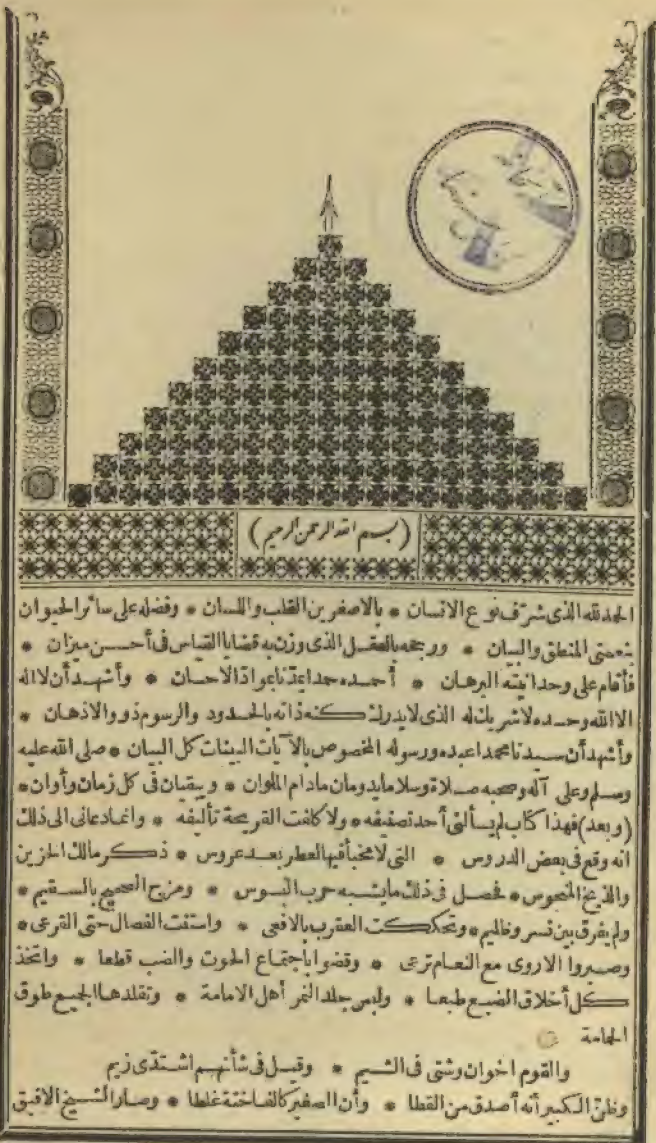 (بسم الله الرحمن الرحيم)
الحمدلله الذى شرّف نوع الانسان * بالاصغرين القلب واللسان * وفضله على سائر الحيوان
بنعمتى المنطق والبيان * ورجحه بالعقل الذى وزن به قضايا القياس فى أحسن ميزان *
فأقام على وحدانيته البرهان * أحمده حمدا يمدّنا بموادّ الاحسان * وأشهد أن لااله
الاالله وحده لاشريك له الذى لايدرك كنه ذاته بالحدود والرسوم ذووالاذهان *
وأشهد أن سيدنا محمدا عبده ورسوله المخصوص بالآيات البينات كل البيان * صلى الله عليه
وسلم وعلى آله وصحبه صلاة وسلاما يدومان مادام الملوان * ويبقيان فى كل زمان وأوان *
(وبعد) فهذا كتاب لم يسألنى أحد تصنيفه * ولا كلفت القريحة تأليفه * وانمادعانى الى ذلك
انه وقع فى بعض الدروس * التى لامخبأ فيها لعطر بعد عروس * ذكر مالك الحزين
والذيخ المنحوس * فحصل فى ذلك مايشبه حرب البسوس * ومزج الصحيح بالسقيم *
ولم يفرق بين نسر وظليم * وتحككت العقرب بالافعى * واستنت الفصال حتى القرعى *
وصيروا الاروى مع النعام ترعى * وقضوا باجتماع الحوت والضب قطعا * واتخذ
كل أخلاق الضبع طبعا * ولبس جلد النمر أهل الامامة * وتقلدها الجميع طوق
الحمامة
والقوم اخوان وشتى فى الشيم * وقيل فى شأنهم اشتدّى زيم
وظنّ الكبير أنه أصدق من القطا * وأن الصغير كالفاختة غلطا * وصار الشيخ الافيق